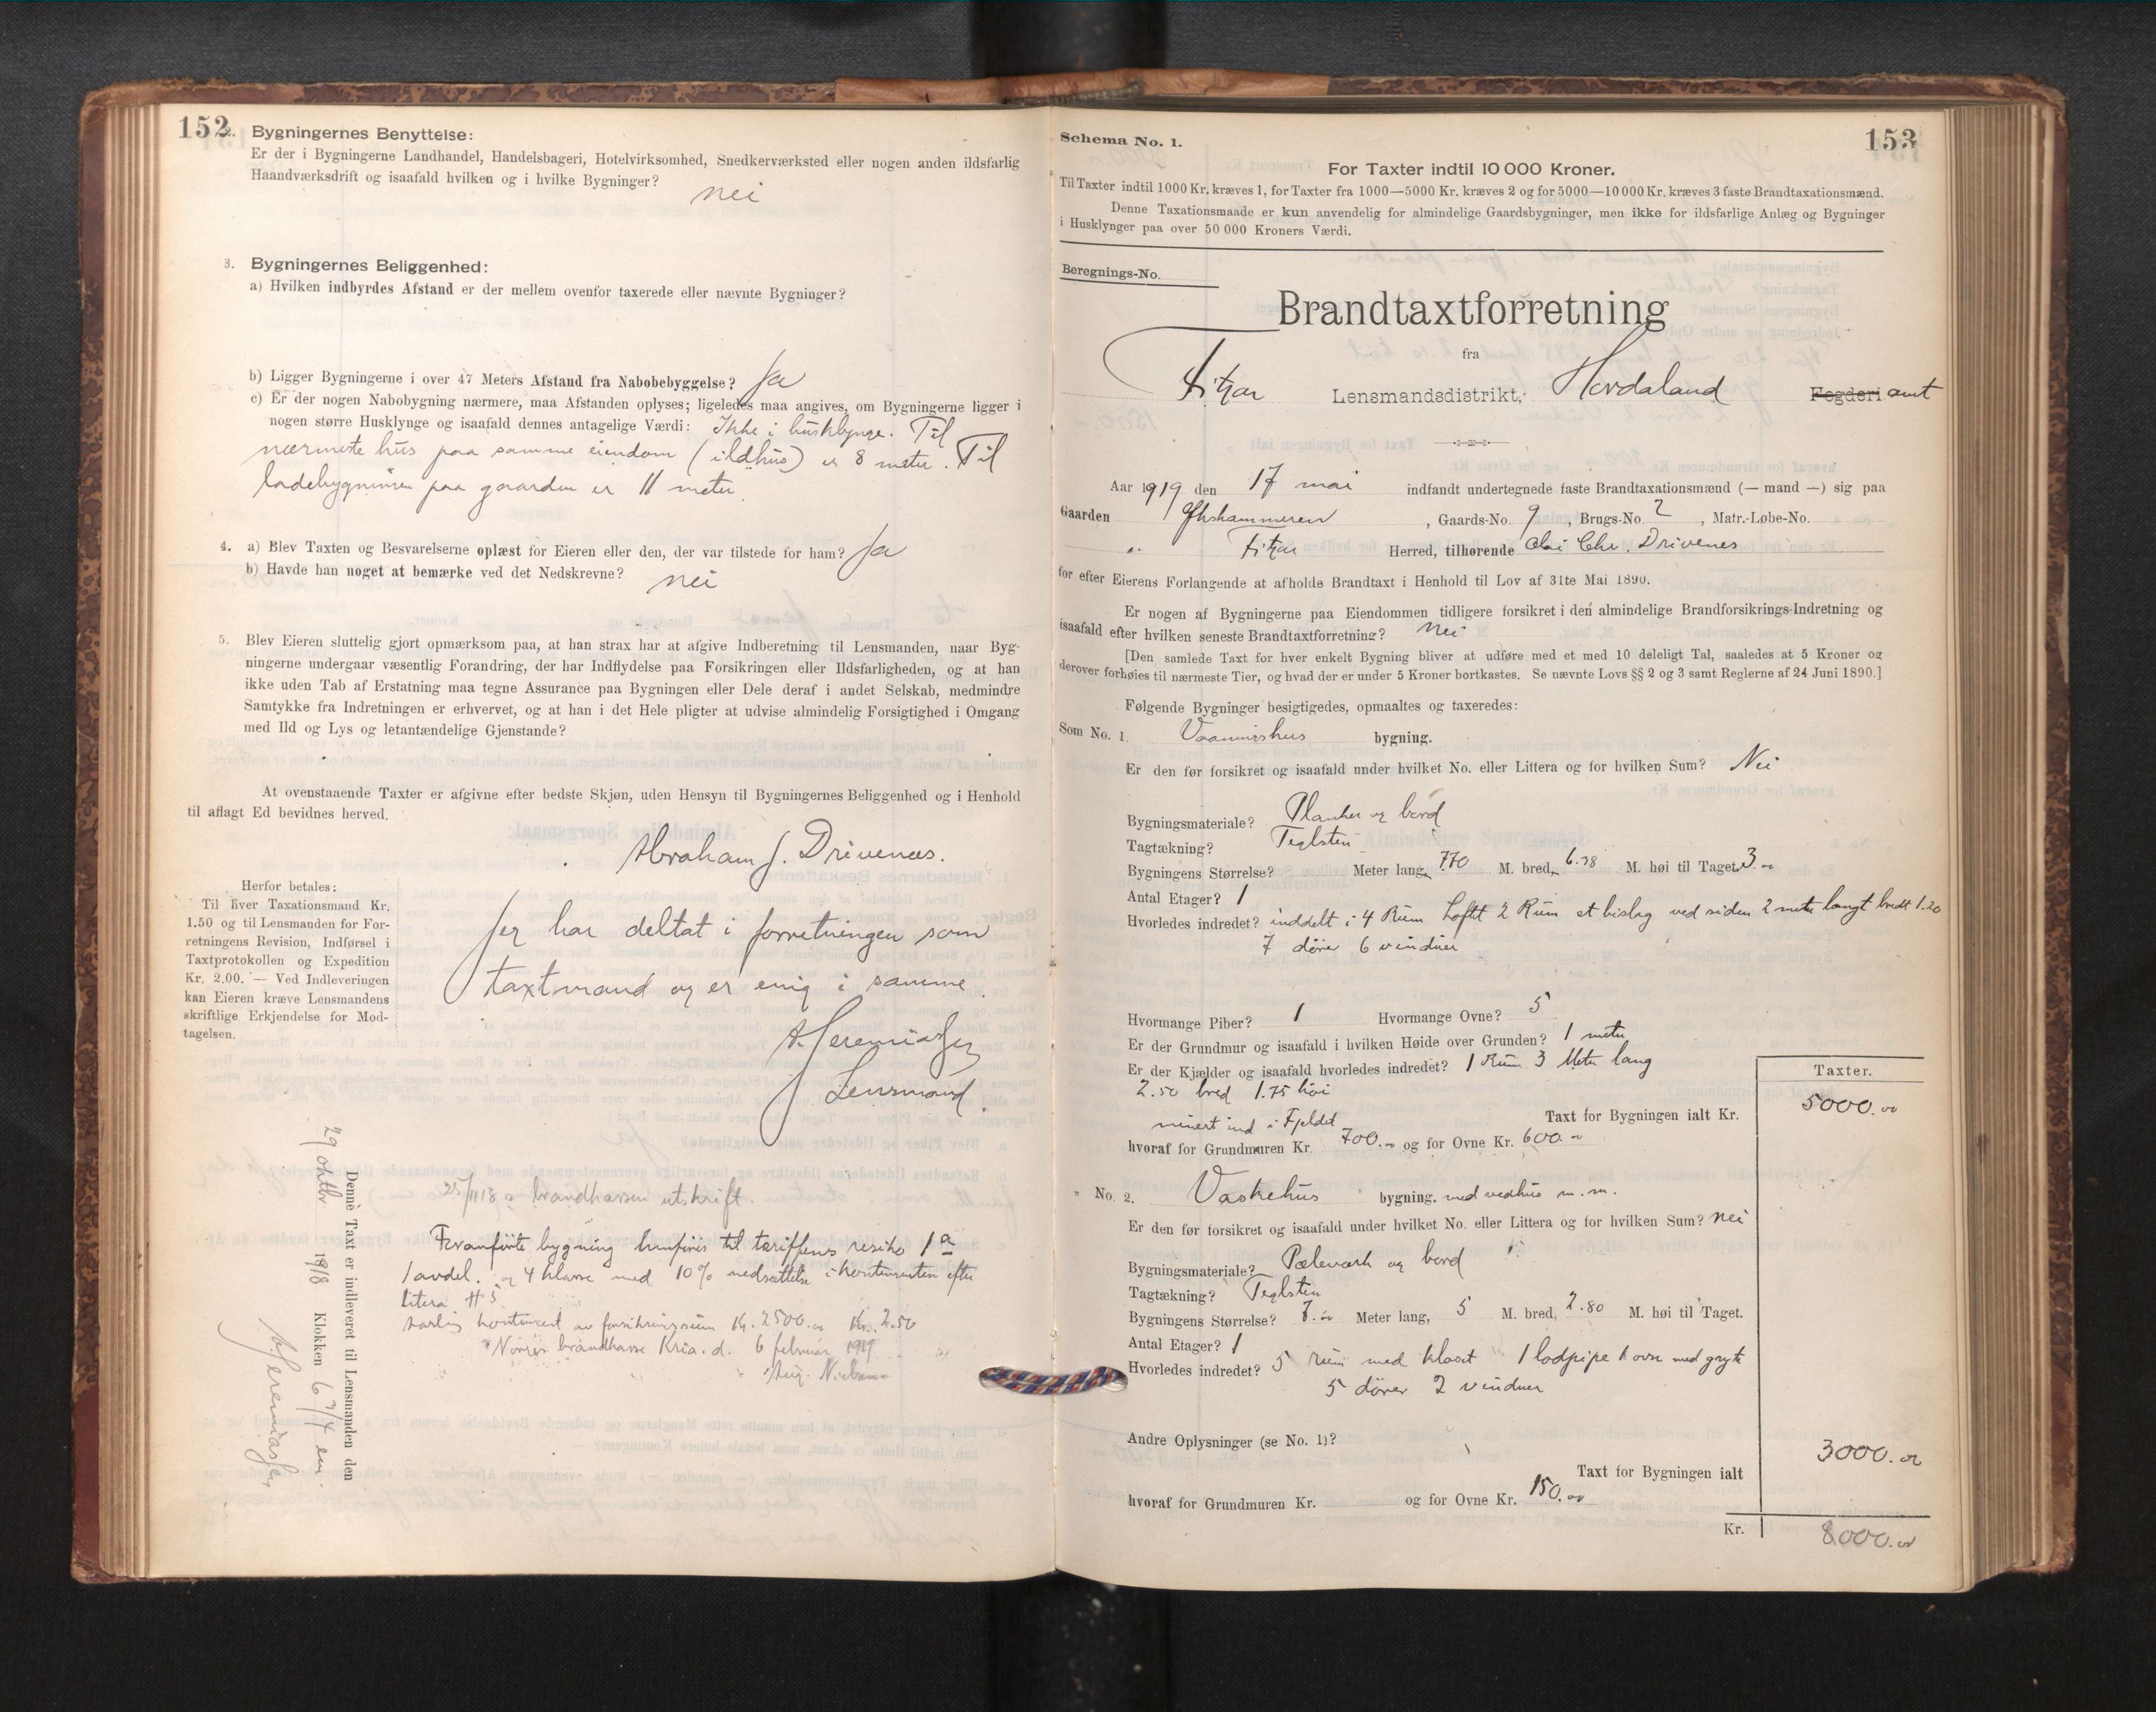 152
2. Bygningernes Benyttelse:
Er der i Bygningerne Landhandel, Handelsbageri, Hotelvirksomhed, Snedkerværksted eller nogen anden ildsfarlig
Haandværksdrift og isaafald hvilken og i hvilke Bygninger?
nei
3. Bygningernes Beliggenhed:
a) Hvilken indbyrdes Afstand er der mellem ovenfor taxerede eller nævnte Bygninger?
b) Ligger Bygningerne i over 47 Meters Afstand fra Nabobebyggelse? Ja
c) Er der nogen Nabobygning nærmere, maa Afstanden oplyses; ligeledes maa angives, om Bygningerne ligger i
nogen større Husklynge og isaafald dennes antagelige Værdi: Ikke i husklynge. Til
nærmeste hus paa samme eiendom (ildhus) er 8 meter. Til
ladebygningen paa gaarden er 11 meter.
4. a) Blev Taxten og Besvarelserne oplæst for Eieren eller den, der var tilstede for ham? Ja
b) Havde han noget at bemærke ved det Nedskrevne? nei
5. Blev Eieren sluttelig gjort opmærksom paa, at han strax har at afgive Indberetning til Lensmanden, naar Byg-
ningerne undergaar væsentlig Forandring, der har Indflydelse paa Forsikringen eller Ildsfarligheden, og at han
ikke uden Tab af Erstatning maa tegne Assurance paa Bygningen eller Dele deraf i andet Selskab, medmindre
Samtykke fra Indretningen er erhvervet, og at han i det Hele pligter at udvise almindelig Forsigtighed i Omgang
med Ild og Lys og letantændelige Gjenstande?
At ovenstaaende Taxter er afgivne efter bedste Skjøn, uden Hensyn til Bygningernes Beliggenhed og i Henhold
til aflagt Ed bevidnes herved.
Abraham J. Drivenes.
Herfor betales:
Til hver Taxationsmand Kr.
1.50 og til Lensmanden for For-
retningens Revision, Indførsel i
Taxtprotokollen og Expedition
Kr. 2.00. — Ved Indleveringen
kan Eieren kræve Lensmandens
skriftlige Erkjendelse for Mod-
tagelsen.
Jeg har deltat i forretningen som
taxtmand og er enig i samme.
A. Jeremiasen
Lensmand.
Denne Taxt er indleveret til Lensmanden den
29 oktbr. 1918 Klokken 6 3/4 em.
A. Jeremiasen
25/11 18 brandkassen utskrift.
Foranførte bygning henføres til tariffens risiko 1a
1 avdel. og 4 klasse med 10% nedsættelse i kontingenten efter
litera H 5
Aarlig kontingent av forsikringssum Kr. 2500.00 Kr. 2.50
Norges brandkasse Kria. d. 6 februar 1919
153
Schema No. 1.
For Taxter indtil 10 000 Kroner.
Til Taxter indtil 1000 Kr. kræves 1, for Taxter fra 1000—5000 Kr. kræves 2 og for 5000—10 000 Kr. kræves 3 faste Brandtaxationsmænd.
Denne Taxationsmaade er kun anvendelig for almindelige Gaardsbygninger, men ikke for ildsfarlige Anlæg og Bygninger
i Husklynger paa over 50 000 Kroners Værdi.
Beregnings-No.
Brandtaxtforretning
fra
Fitjar Lensmandsdistrikt, Hordaland Fogderi amt
Aar 1919 den 17 mai indfandt undertegnede faste Brandtaxationsmænd (— mand —) sig paa
Gaarden , Gaards-No. 9, Brugs-No. 2, Matr.-Løbe-No.
" Fitjar Herred, tilhørende Chr. Drivenes
for efter Eierens Forlangende at afholde Brandtaxt i Henhold til Lov af 31te Mai 1890.
Er nogen af Bygningerne paa Eiendommen tidligere forsikret i den almindelige Brandforsikrings-Indretning og
isaafald efter hvilken seneste Brandtaxtforretning? Nei
[Den samlede Taxt for hver enkelt Bygning bliver at udføre med et med 10 deleligt Tal, saaledes at 5 Kroner og
derover forhøies til nærmeste Tier, og hvad der er under 5 Kroner bortkastes. Se nævnte Lovs §§ 2 og 3 samt Reglerne af 24 Juni 1890.]
Følgende Bygninger besigtigedes, opmaaltes og taxeredes:
Som No. 1. Vaaningshus bygning.
Er den før forsikret og isaafald under hvilket No. eller Littera og for hvilken Sum? Nei
Bygningsmateriale? Planker og bord
Tagtækning? Teglsten
Bygningens Størrelse? Meter lang, 7.70 M. bred, 6.78 M. høi til Taget. 3.00
Antal Etager? 1
Hvorledes indredet? inddelt i 4 Rum Loftet 2 Rum et bislag ved siden 2 meter langt bredt 1.20
7 dører 6 vinduer
Hvormange Piber? 1 Hvormange Ovne? 5
Er der Grundmur og isaafald i hvilken Høide over Grunden? 1 meter
Er der Kjælder og isaafald hvorledes indredet? 1 Rum 3 Meter lang
2.50 bred 1.75 høi
minert ind i Fjeldet
Taxter.
Taxt for Bygningen ialt Kr. 5000.00
hvoraf for Grundmuren Kr. 700.00 og for Ovne Kr. 600.00
" No. 2. Vaskehus bygning. med vedhus m.m.
Er den før forsikret og isaafald under hvilket No. eller Littera og for hvilken Sum? nei
Bygningsmateriale? Pæleverk og bord
Tagtækning? Teglsten
Bygningens Størrelse? 7.00 Meter lang, 5 M. bred, 2.80 M. høi til Taget.
Antal Etager? 1
Hvorledes indredet? 5 rum med kloset 1 lodpipe 1 ovn med gryte
5 dører 2 vinduer
Andre Oplysninger (se No. 1)?
Taxt for Bygningen ialt 3000.00
hvoraf for Grundmuren Kr. og for Ovne Kr. 150.00
Kr. 8000.00